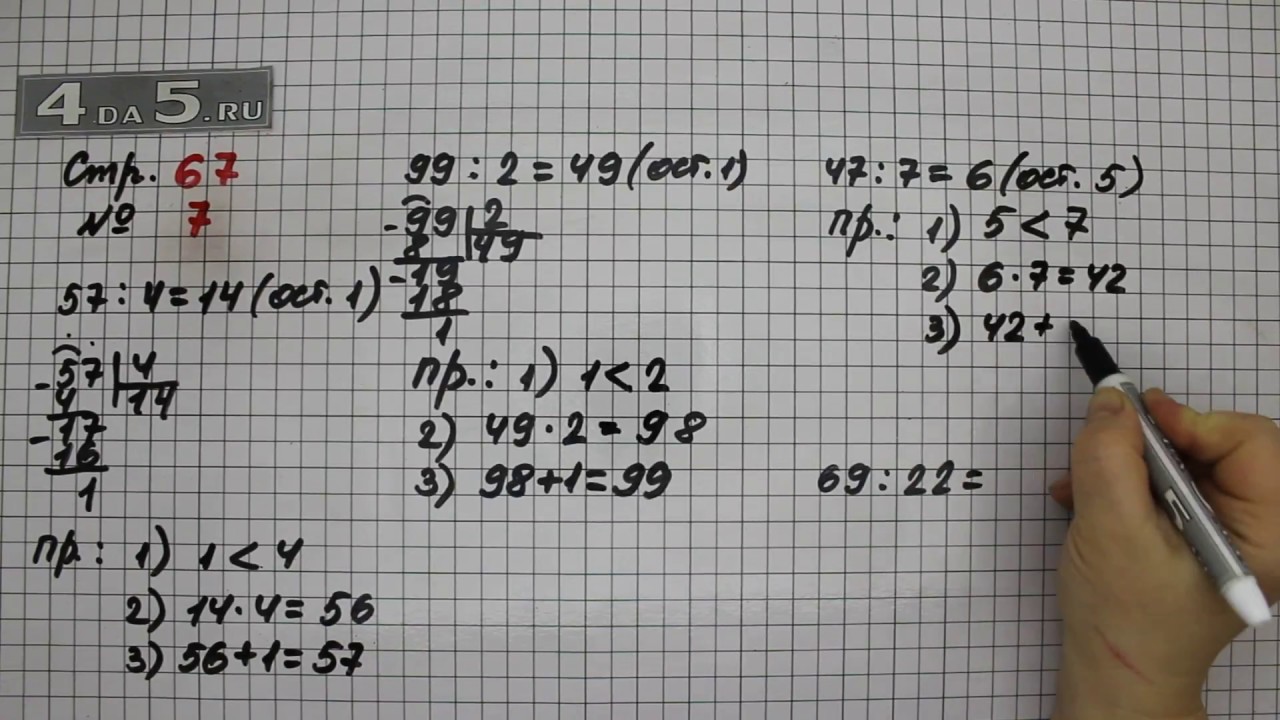 4 DA 5.RU
Стр. 67
№ 7
57 : 4 = 14 (ост. 1)
- 57 | 4
4 | 14
- 17
16
1
пр.: 1) 1 < 4
2) 14 · 4 = 56
3) 56 + 1 = 57
99 : 2 = 49 (ост. 1)
- 99 | 2
8 | 49
- 19
18
1
пр.: 1) 1 < 2
2) 49 · 2 = 98
3) 98 + 1 = 99
47 : 7 = 6 (ост. 5)
пр.: 1) 5 < 7
2) 6 · 7 = 42
3) 42 +
69 : 22 =